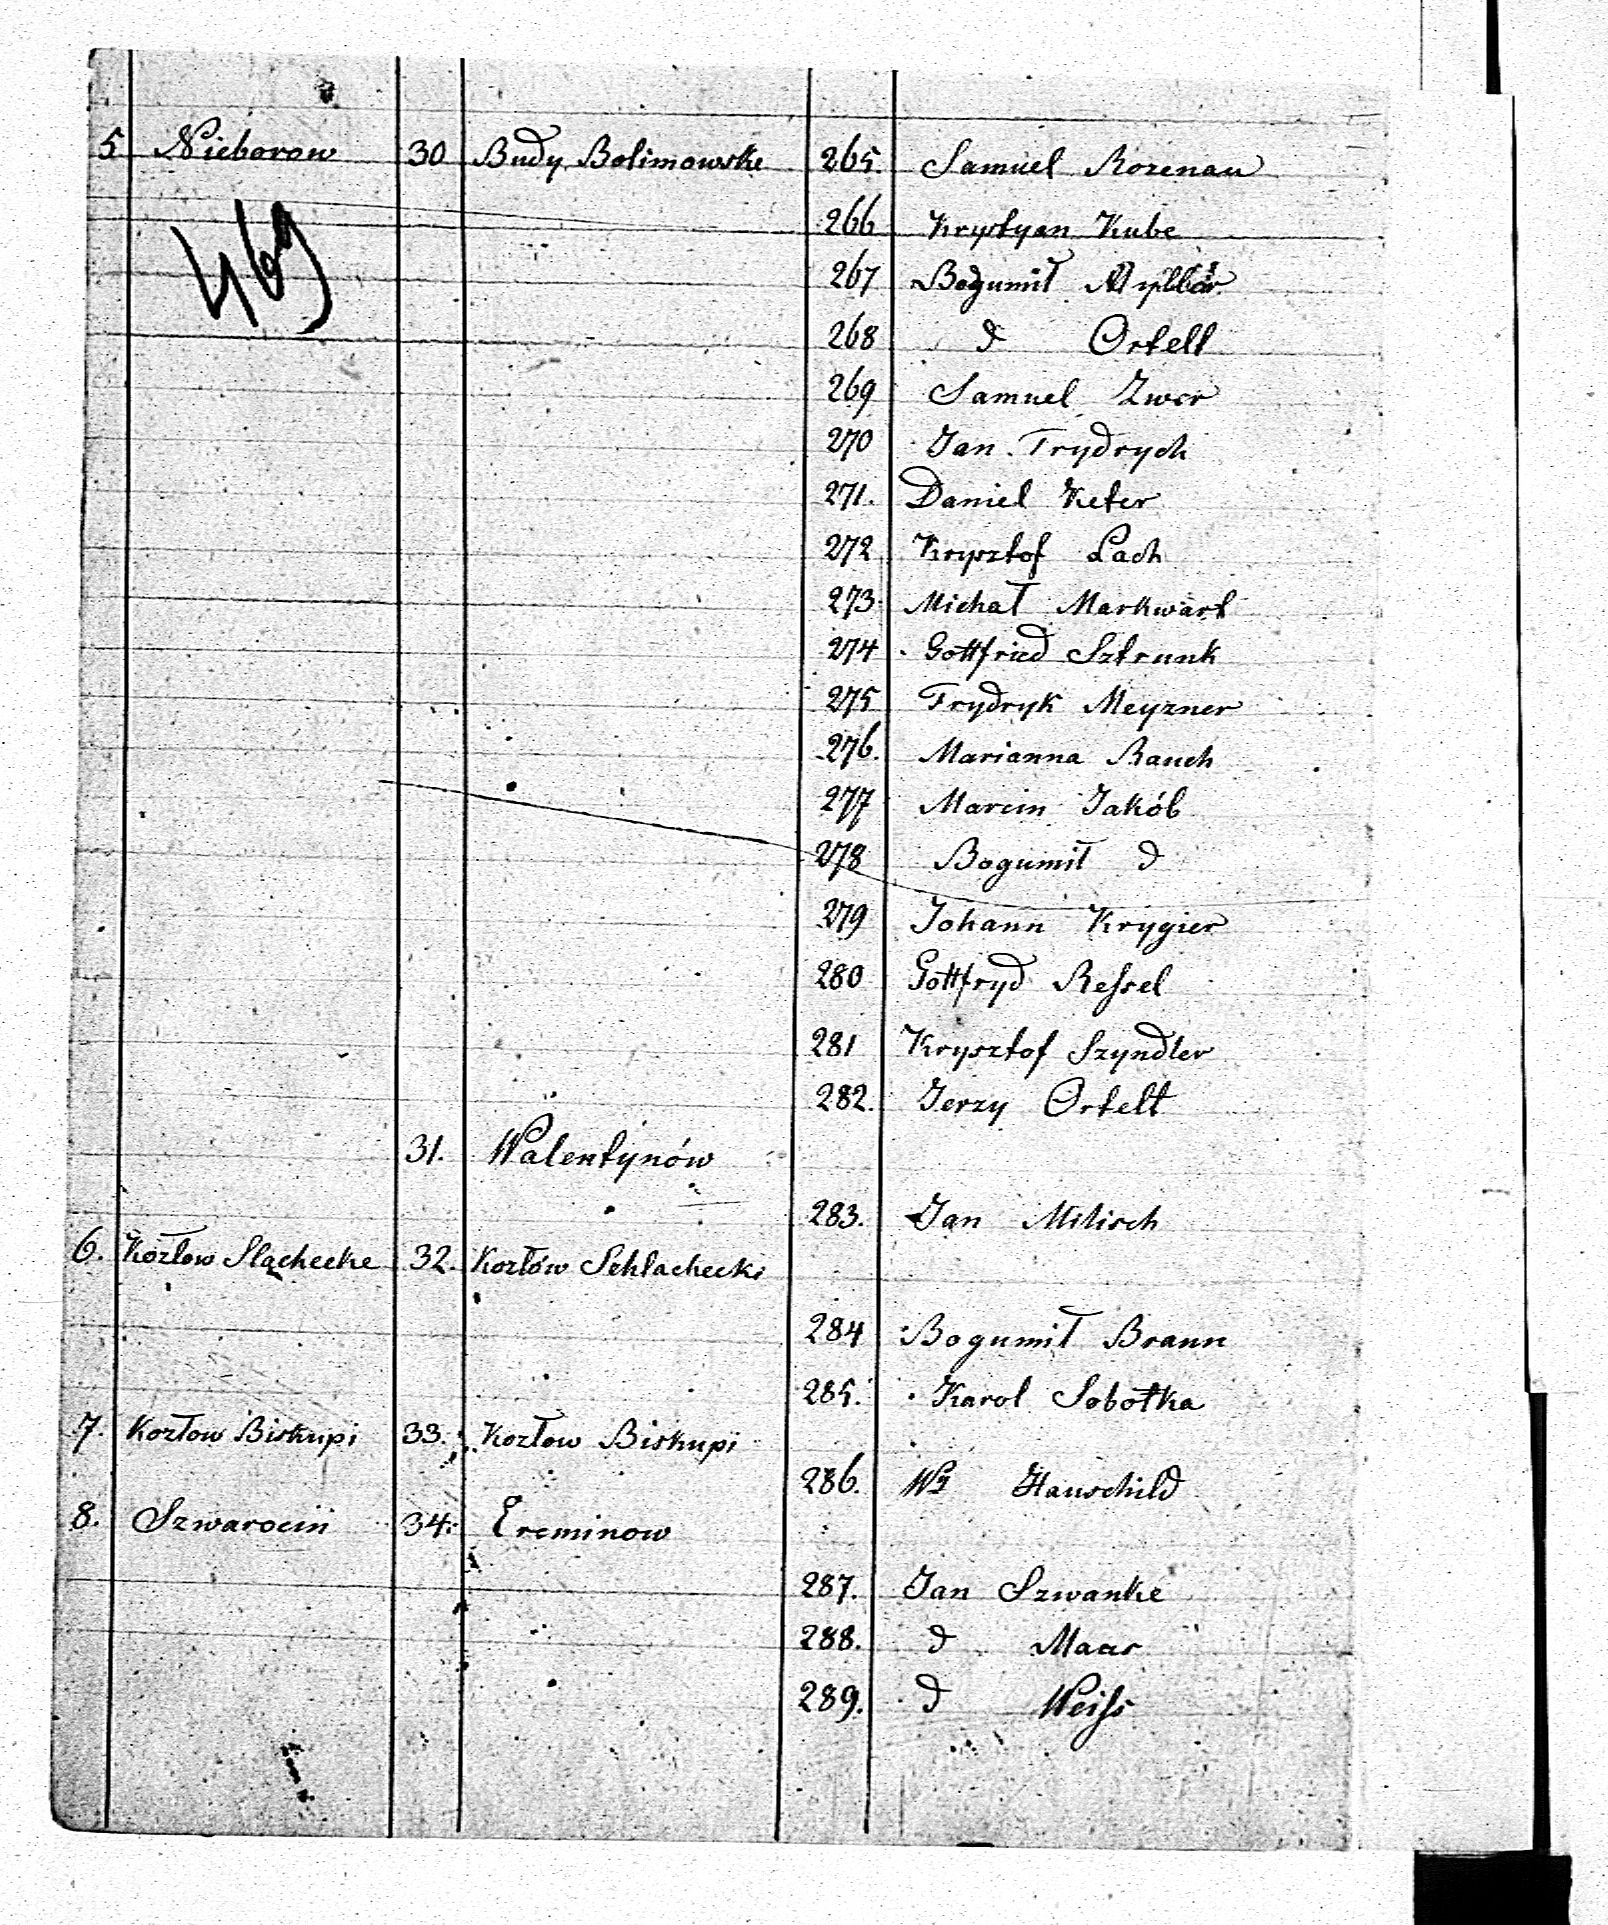 5 Nieborow 30 Budy Bolimowske 265. Samuel Rozenau
469
266 Krystyan Kube
267 Bogumił
268 d Ortell
269 Samuel Zwer
270 Jan Frydrych
271. Daniel Keter
272 Krysztof Lach
273 Michał Markwart
274 Gottfried Sztrunk
275 Frydryk Meyzner
276. Marianna Rauch
277 Marcin Jakób
278 Bogumił d
279 Johann Krygier
280 Gottfryd Ressel
281 Krysztof Szyndler
282. Jerzy Ortelt
31. Walentynów
283. Jan Milisch
6. Kozłow Slachecke 32. Kozłów Schlachecki
284 Bogumił Braun
285. Karol Sobotka
7. Kozłow Biskupi 33. Kozłow Biskupi
286. Hauschild
8. Szwarocin 34. Ereminow
287. Jan Szwanke
288. d Maas
289. d Weiss